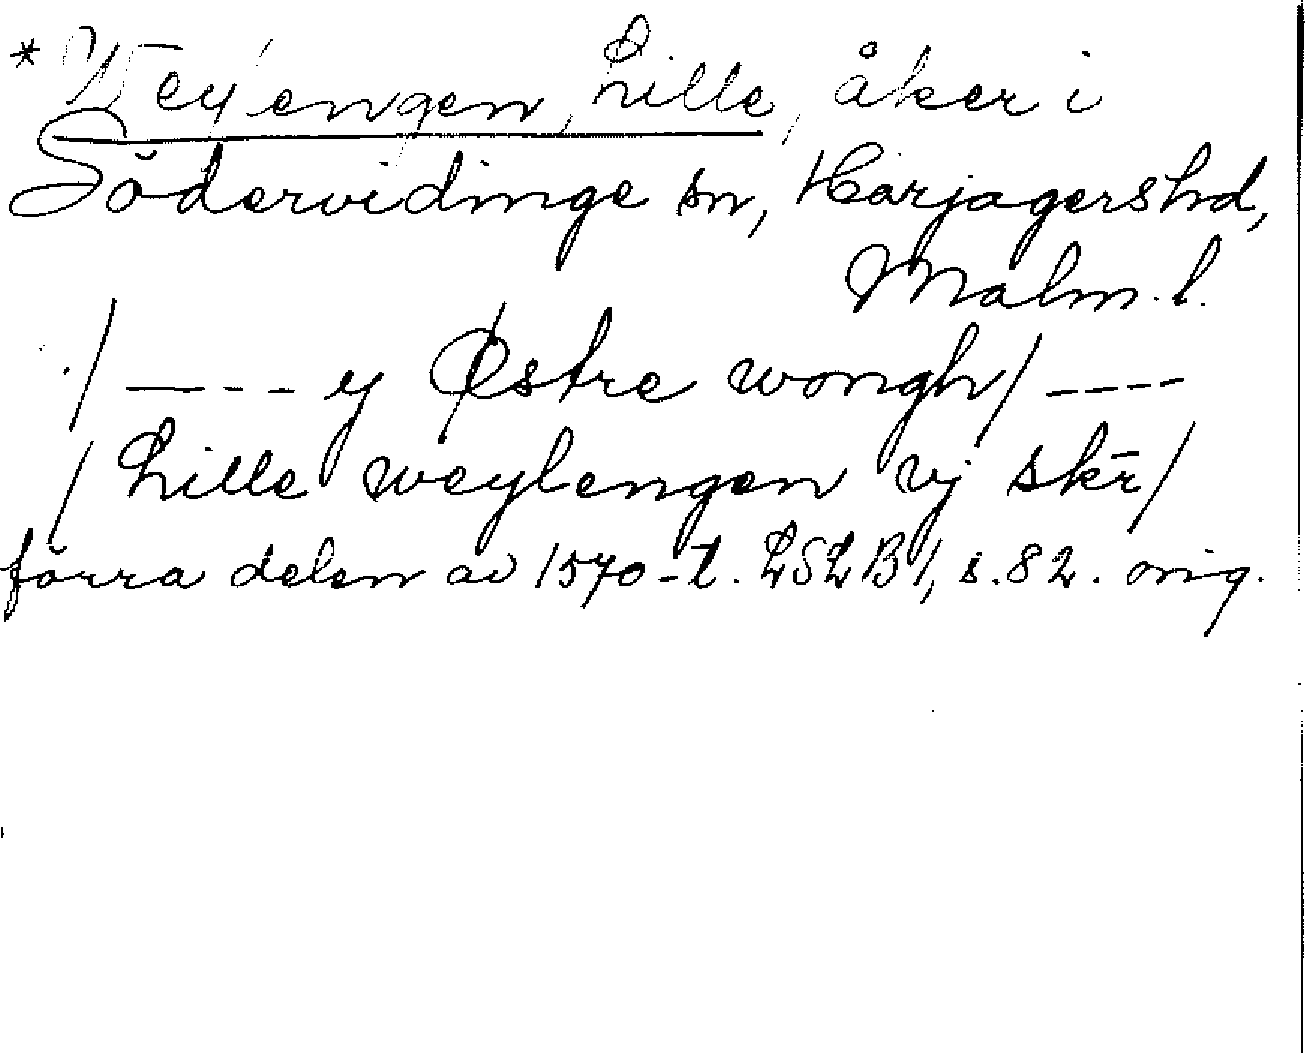 * Weylengen, Lille, åker i
Södervidinge sn, Harjagers hd,
Malm. l.
/ ---- y Østre wongh / ----
/ Lille weylengen vj skr̄ /
förra delen av 1570-t. LSLB 1, s. 82. orig.